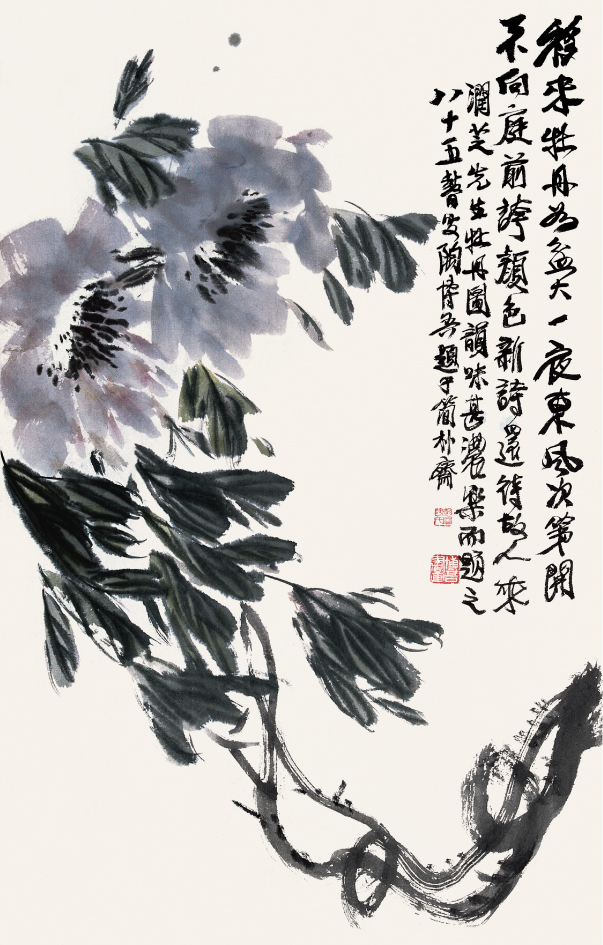 移来牡丹为盆大一夜東風次第開
不向庭前誇顔色新詩還待故人來
潤芝先生牡丹圖韻味甚濃樂而題之
八十五瞽叟陶博吾題于簡朴齋